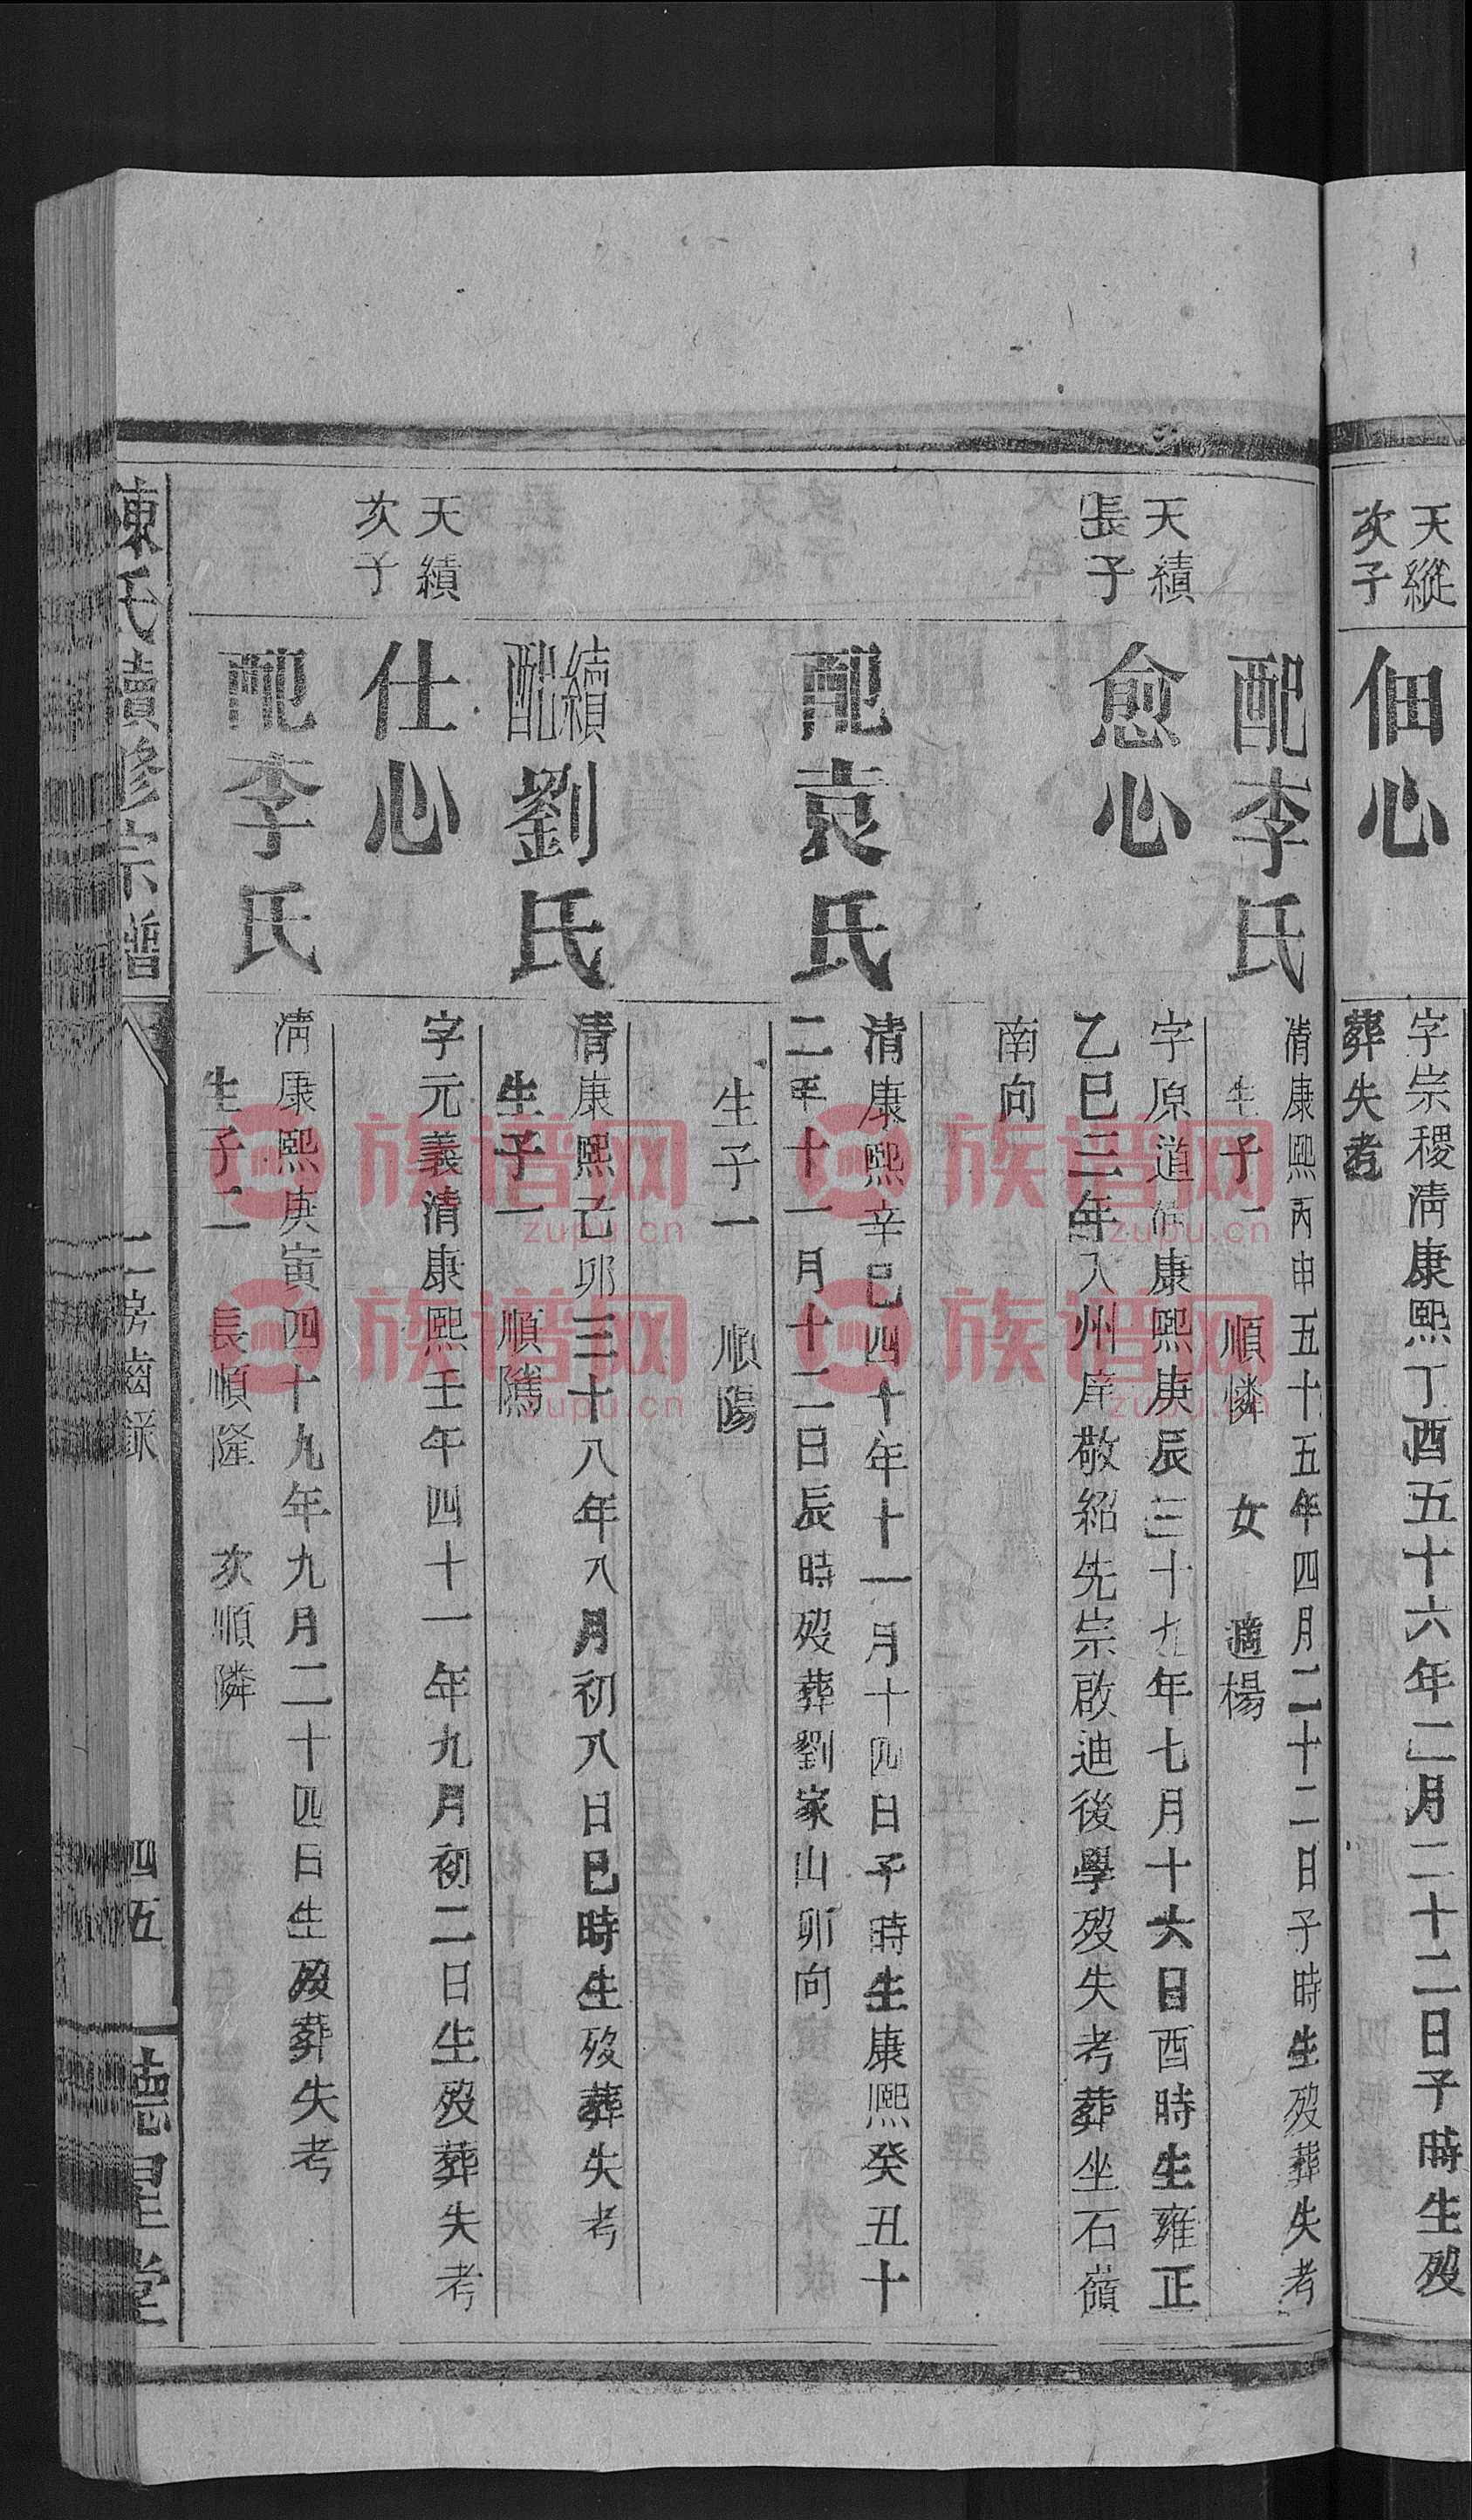 天縱
次子
佃心
字宗稷淸康熙丁酉五十六年二月二十二日子時生歿
葬失考
配李氏
淸康熙丙申五十五年四月二十二日子時生歿葬失考
生子一　順憐　女　適楊
天績
長子
愈心
字原道淸康熙庚辰三十九年七月十六日酉時生雍正
乙巳三年入州庠敬紹先宗啟迪後學歿失考葬坐石嶺
南向
配袁氏
清康熙辛巳四十年十一月十四日子時生康熙癸丑十
二年十一月十二日辰時歿葬劉家山卯向
生子一　順陽
續配劉氏
清康熙己卯三十八年八月初八日巳時生歿葬失考
生子一　順隲
天績
次子
仕心
字元義清康熙壬午四十一年九月初二日生歿葬失考
配李氏
淸康熙庚寅四十九年九月二十四日生歿葬失考
生子二　長順隆　次順隣
陳氏續修宗譜
二房齒錄
四五
德星堂
族谱网
zupu.cn
族谱网
zupu.cn
族谱网
zupu.cn
族谱网
zupu.cn